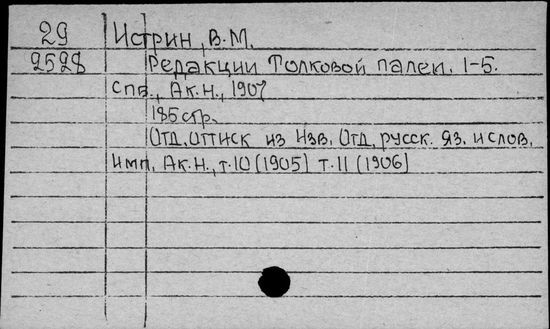 29 Истрин, В.М.
2528 Редакции Толковой палеи. 1-5.
Спб., Ак.Н., 1907
185 стр.
Отд. оттиск из Изв. Отд. русск. яз. и слов.
Имп. Ак.Н., т.10 (1905) т.11 (1906)